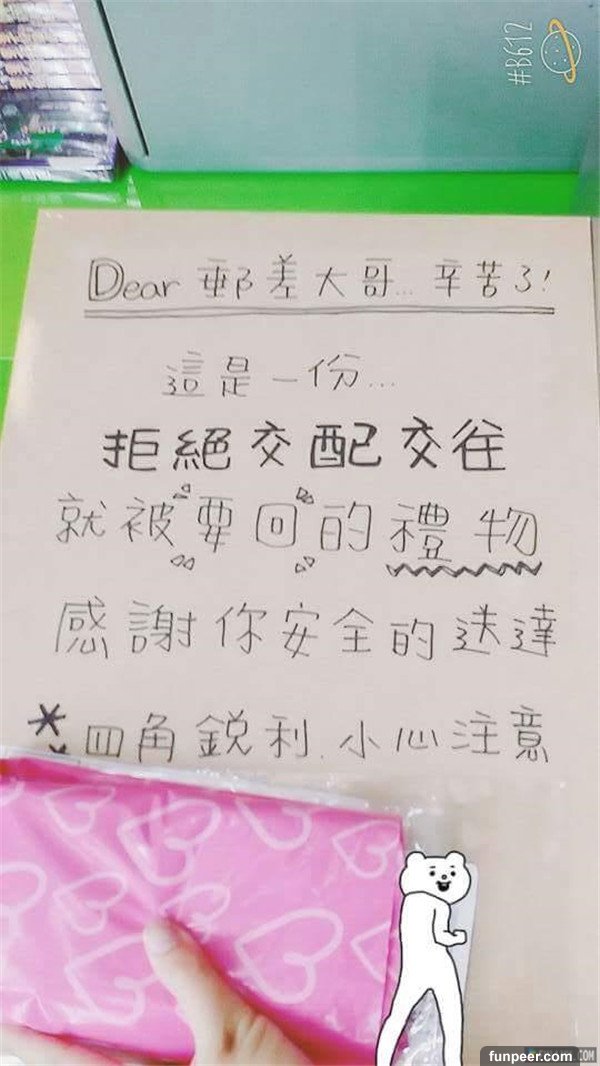 #B612
Dear 郵差大哥... 辛苦了!
這是一份...
拒絕交配交往
就被要回的禮物
感謝你安全的送達
* 四角銳利.小心注意
funpeer.com